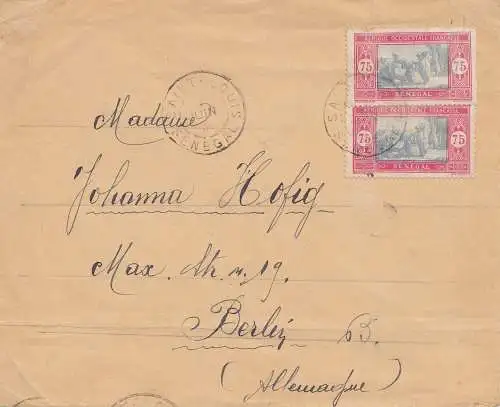 AFRIQUE OCCIDENTALE FRANÇAISE
75 75
SÉNÉGAL
AFRIQUE OCCIDENTALE FRANÇAISE
75 75
SÉNÉGAL
SAINT-LOUIS
JUIN
SÉNÉGAL
Madame
Johanna Hofig
Max. Str. n. 19.
Berlin
(Allemagne)